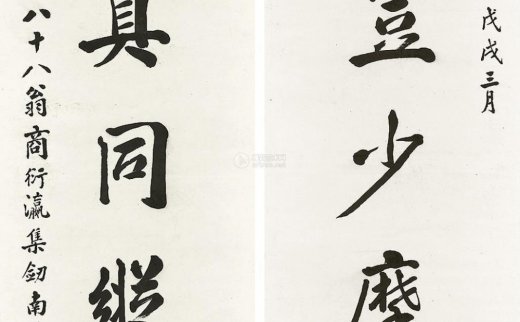 戊戌三月
豈少磨
真同縱
八十八翁商衍瀛集劒南